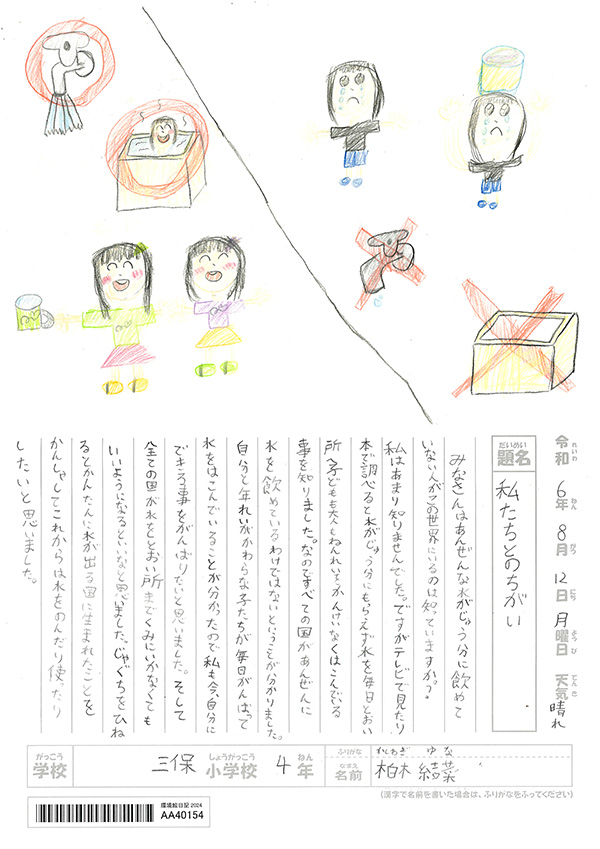 令和 6年 8月 12日 月曜日 天気 晴れ
れいわ ねん がつ にち ようび てんき
だいめい
題名 私たちとのちがい
みなさんはあんぜんな水がじゅう分に飲めて
いない人がこの世界にいるのは知っていますか?
私はあまり知りませんでした。ですがテレビで見たり
本で調べると水がじゅう分にもらえず水を毎日とおい
所へ子どもも大人もねんれいもかんけいなくはこんでいる
事を知りました。なのですべての国があんぜんに
水を飲めているわけではないということが分かりました。
自分と年れいがかわらな子たちが毎日がんばって
水をはこんでいることが分かったので私も今、自分に
できる事をがんばりたいと思いました。そして
全ての国が水をとおい所まで くみにいかなくても
いいようになるといいなと思いました。じゃぐちをひね
るとかんたんに水が出る国に生まれたことを
かんしゃしてこれからは水をのんだり使ったり
したいと思いました。
がっこう
学校 三保 小学校 4年
しょうがっこう ねん
ふりがな かしわぎ ゆな
なまえ
名前 柏木 結菜
(漢字で名前を書いた場合は、ふりがなをふってください)
環境絵日記 2024
AA40154